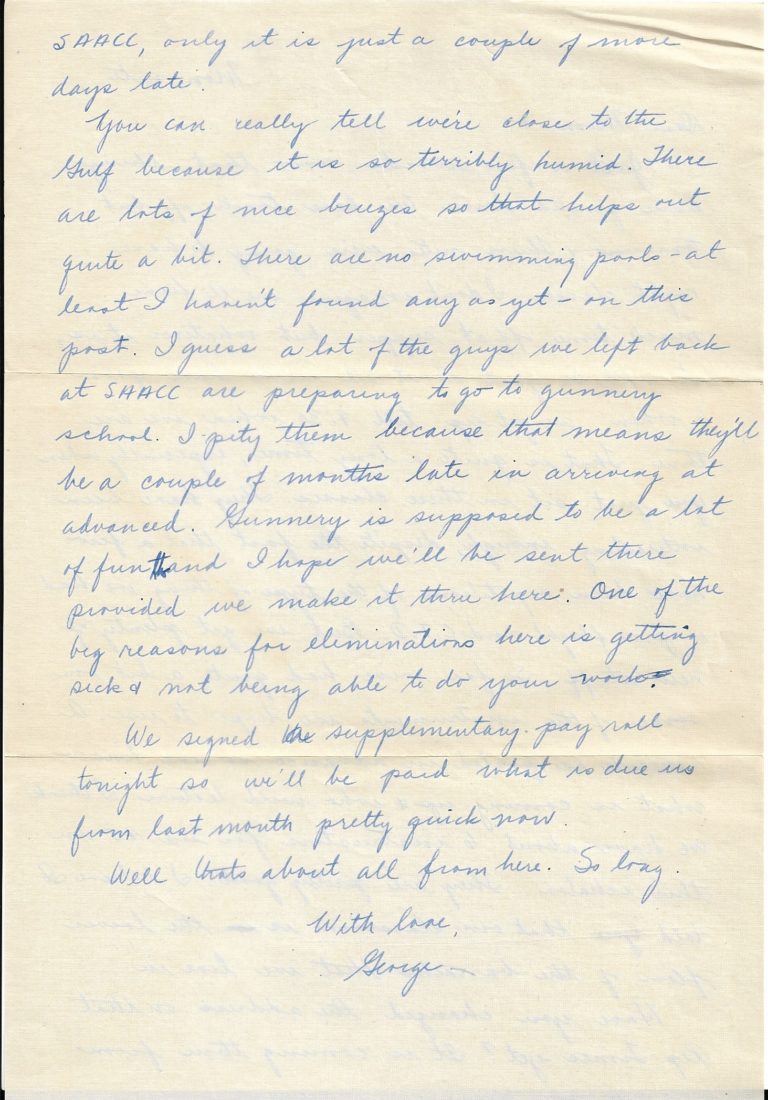 SAACC, only it is just a couple of more
days late.
You can really tell we're close to the
Gulf because it is so terribly humid. There
are lots of nice breezes so that helps out
quite a bit. There are no swimming pools - at
least I haven't found any as yet - on this
post. I guess a lot of the guys we left back
at SAACC are preparing to go to gunnery
school. I pity them because that means they'll
be a couple of months late in arriving at
advanced. Gunnery is supposed to be a lot
of fun and I hope we'll be sent there
provided we make it thru here. One of the
big reasons for eliminations here is getting
sick & not being able to do your work.
We signed the supplementary pay roll
tonight so we'll be paid what is due us
from last month pretty quick now.
Well thats about all from here. So long.
With love,
George